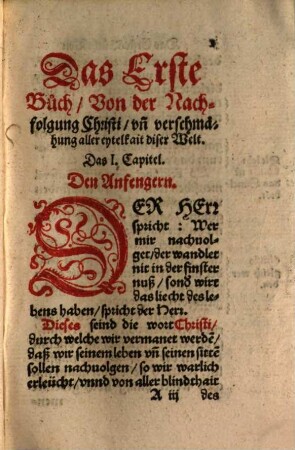 Das Erste
Bůch / Von der Nach-
folgung Christi / vñ verschmä-
hung aller eytelkait diser Welt.
Das I. Capitel.
Den Anfengern.
DER HErr
spricht : Wer
mir nachuol-
get / der wandlet
nit in der finster
nuß / sond wirt
das liecht des le-
bens haben / spricht der Herr.
Dieses seind die wort Christi /
durch welche wir vermanet werdẽ /
daß wir seinem leben vñ seinen sittẽ
sollen nachuolgen / so wir warlich
erleücht / vnnd von aller blindthait
A iij des